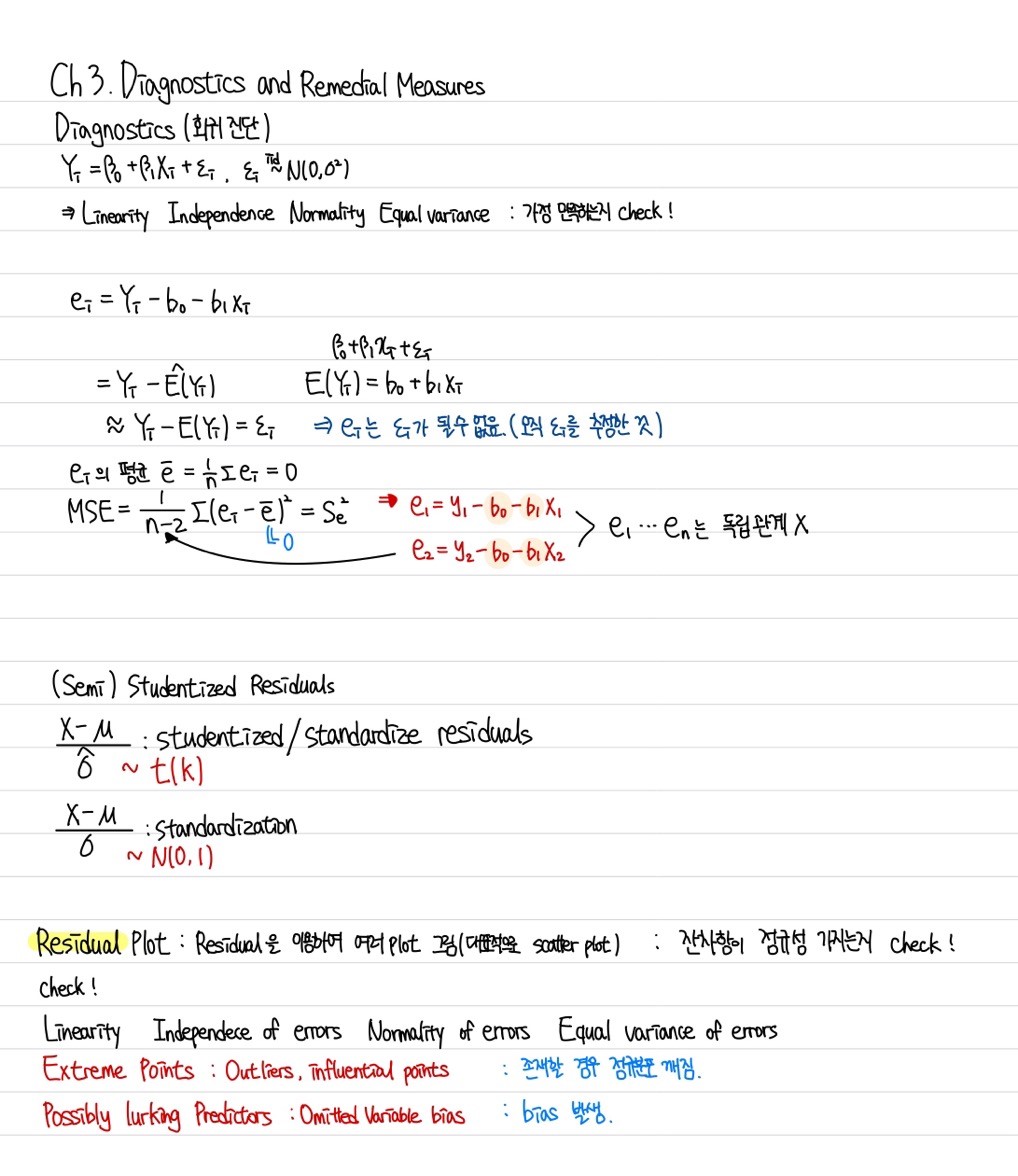 Ch 3. Diagnostics and Remedial Measures
Diagnostics (회귀 진단)
Yᵢ = β₀ + β₁Xᵢ + εᵢ , εᵢ ~ N(0, σ²)
⇒ Linearity Independence Normality Equal variance : 가정 만족하는지 check !
eᵢ = Yᵢ - b₀ - b₁xᵢ
β₀+β₁xᵢ+εᵢ
= Yᵢ - Ê(Yᵢ) E(Yᵢ) = b₀ + b₁xᵢ
≈ Yᵢ - E(Yᵢ) = εᵢ ⇒ eᵢ는 εᵢ가 될수 없음. (오직 εᵢ를 추정한 것)
eᵢ의 평균 ē = 1/n Σeᵢ = 0
MSE = 1/(n-2) Σ(eᵢ - ē)² = Se² ⇒ e₁ = y₁ - b₀ - b₁x₁
0 e₂ = y₂ - b₀ - b₁x₂ > e₁ ⋯ eₙ는 독립관계 X
(Semi) Studentized Residuals
(X-μ)/σ̂ : studentized/standardize residuals
~ t(k)
(X-μ)/σ : standardization
~ N(0, 1)
Residual Plot : Residual을 이용하여 여러 plot 그림(대표적으로 scatter plot) : 잔차항이 정규성 가지는지 check !
check !
Linearity Independece of errors Normality of errors Equal variance of errors
Extreme Points : Outliers, influential points : 존재할 경우 정규분포 깨짐.
Possibly lurking Predictors : Omitted Variable bias : bias 발생.